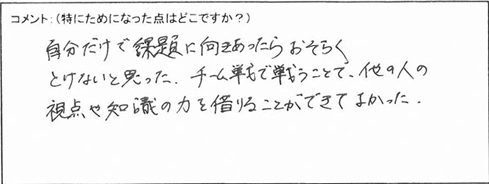 コメント：（特にためになった点はどこですか？）
自分だけで課題に向きあったらおそらく
とけないと思った．チーム戦で戦うことで、他の人の
視点や知識の力を借りることができてよかった．